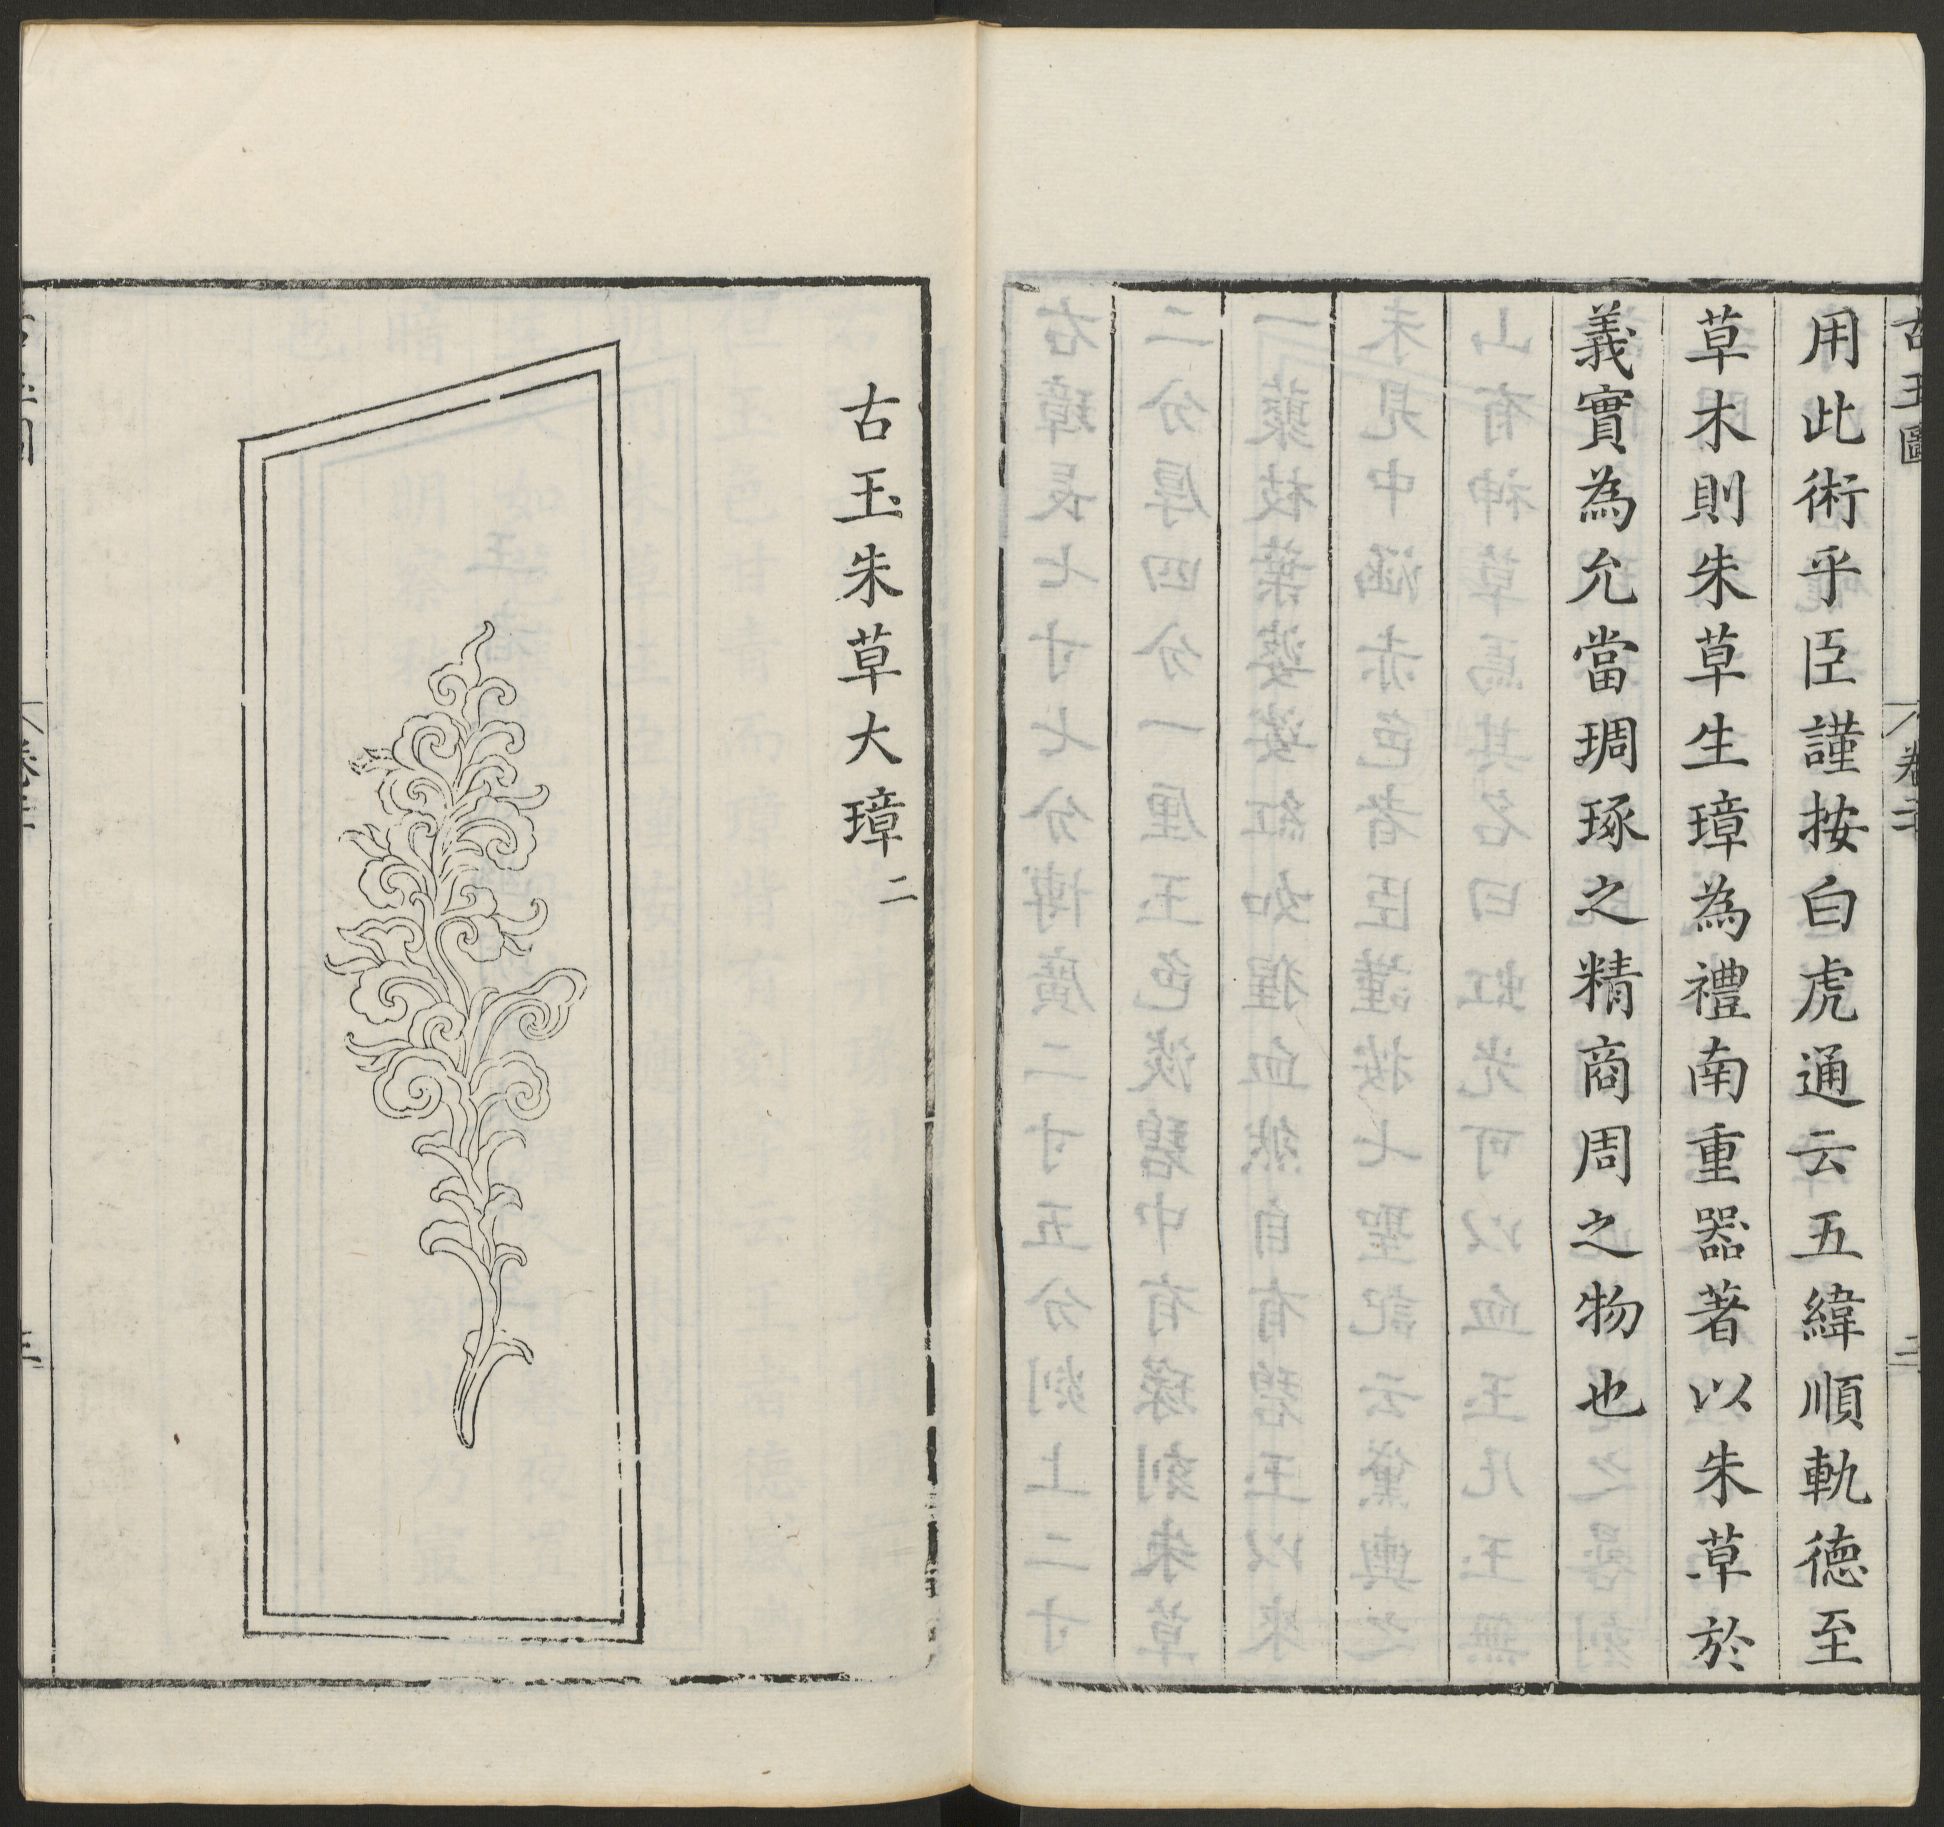 古玉圖
卷二
二
用此術乎臣謹按白虎通云五緯順軌德至
草木則朱草生璋為禮南重器著以朱草於
義實為允當琱琢之精商周之物也
古玉朱草大璋二